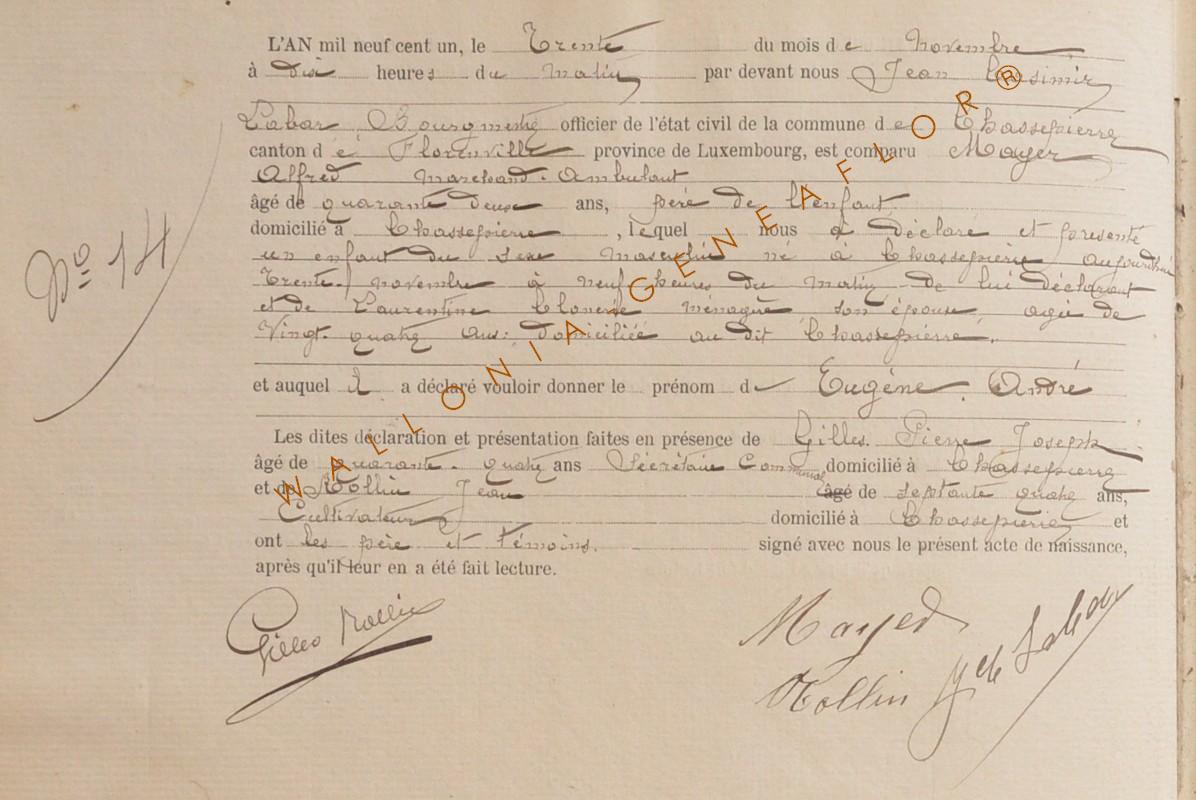 N° 14
L'AN mil neuf cent un, le Trente du mois de Novembre
à dix heures du matin par devant nous Jean Casimir
Labar Bourgmestre officier de l'état civil de la commune de Chassepierre
canton de Florenville province de Luxembourg, est comparu Mayer
Alfred marchand ambulant
âgé de quarante deux ans, père de l'enfant
domicilié à Chassepierre, lequel nous a déclaré et présenté
un enfant du sexe masculin né à Chassepierre aujourd'hui
Trente novembre à neuf heures du matin de lui déclarant
et de Laurentine ménagère son épouse, agée de
Vingt quatre ans, domiciliée au dit Chassepierre.
et auquel il a déclaré vouloir donner le prénom d Eugène André
Les dites déclaration et présentation faites en présence de Gilles Pierre Joseph
âgé de quarante quatre ans Secrétaire Communal domicilié à Chassepierre
et de Rollin Jean âgé de septante quatre ans,
Cultivateur domicilié à Chassepierre et
ont les père et témoins. signé avec nous le présent acte de naissance,
après qu'il leur en a été fait lecture.
Gilles Rollin
Mayer
Rollin Labar
WALLONIA GENEAFLOR®